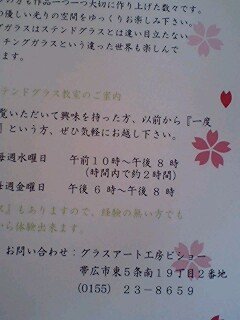 の方も作品一つ一つ大切に作り上げた数々です。
の優しい光りの空間をゆっくりお楽しみ下さい。
グガラスはステンドグラスとは違い目立たない
チングガラスという違った世界も楽しんで
ます。
テンドグラス教室のご案内
覧いただいて興味を持った方、以前から『一度
』という方、ぜひ気軽にお越し下さい。
毎週水曜日 午前10時〜午後8時
(時間内で約2時間)
毎週金曜日 午後6時〜午後8時
ス』もありますので、経験の無い方でも
から体験出来ます。
お問い合わせ:グラスアート工房ビショー
帯広市東5条南19丁目2番地
(0155) 23-8659